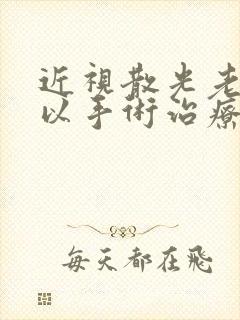 近視散光老
以手術治療
每天都在飛